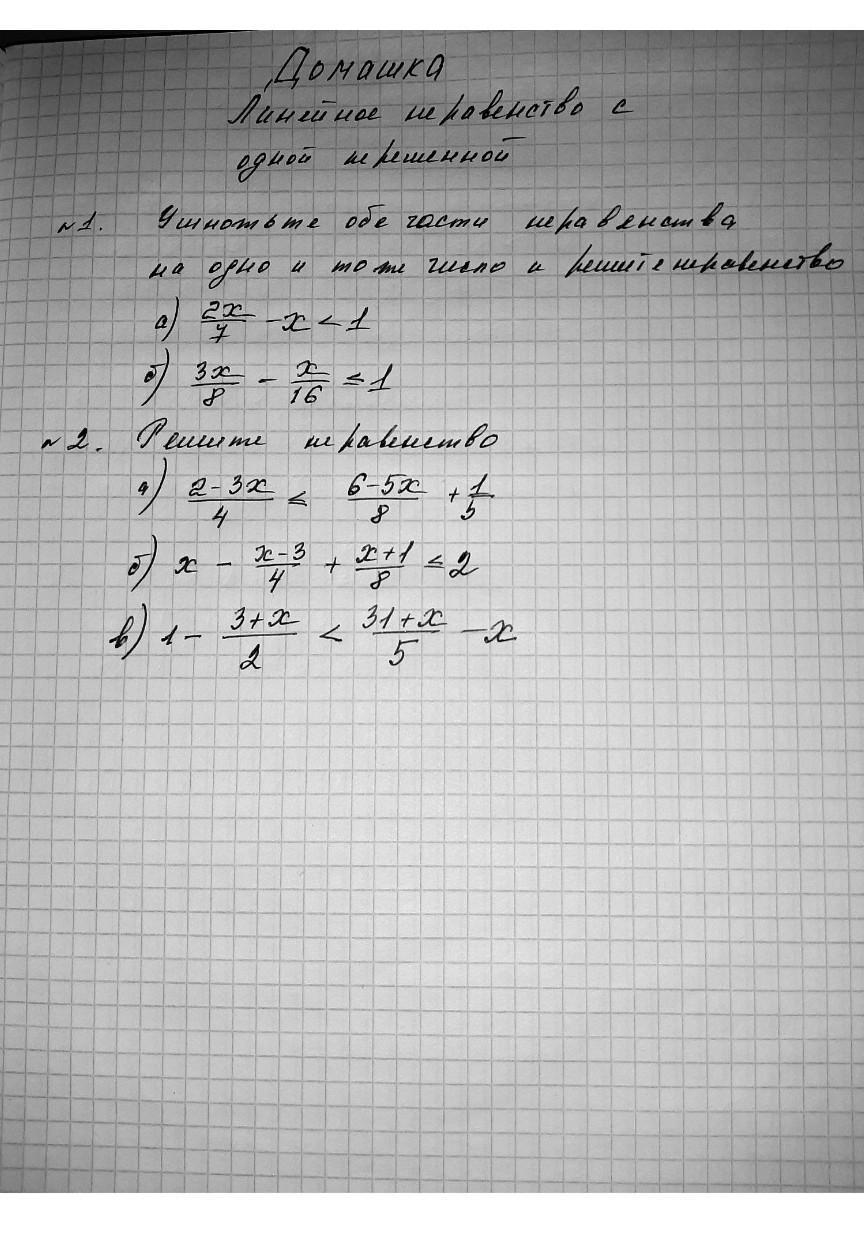 Домашка
Линейное неравенство с
одной переменной
№1. Умножьте обе части неравенства
на одно и тоже число и решите неравенство
а) 2x/7 - x < 1
б) 3x/8 - x/16 ≤ 1
№2. Решите неравенство
а) 2-3x/4 ≤ 6-5x/8 + 1/5
б) x - x-3/4 + x+1/8 ≤ 2
в) 1 - 3+x/2 < 31+x/5 - x